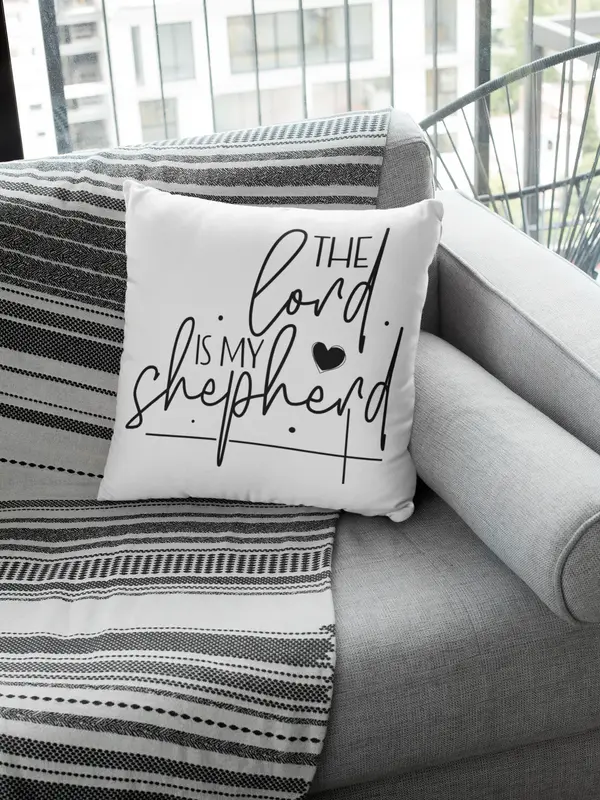 THE
lord
IS MY
shepherd